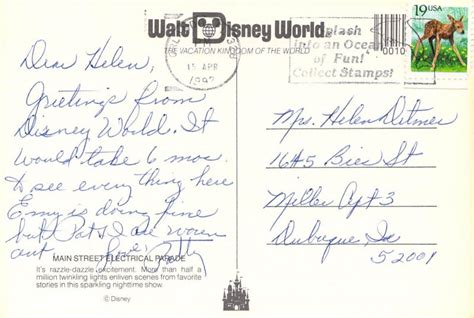 Walt Disney World
THE VACATION KINGDOM OF THE WORLD
15 APR
1992
Splash
into an Ocean
of Fun!
Collect Stamps!
19 USA
0010
Dear Helen,
Greetings from
Disney World. It
would take 6 mos.
to see everything here
Emy is doing fine
but Pat & I are worn
out Love, Patty
MAIN STREET ELECTRICAL PARADE
It's razzle-dazzle excitement. More than half a
million twinkling lights enliven scenes from favorite
stories in this sparkling nighttime show.
© Disney
Mrs. Helen Ditmer
1645 Bies St
Miller Apt 3
Dubuque Ia
52001